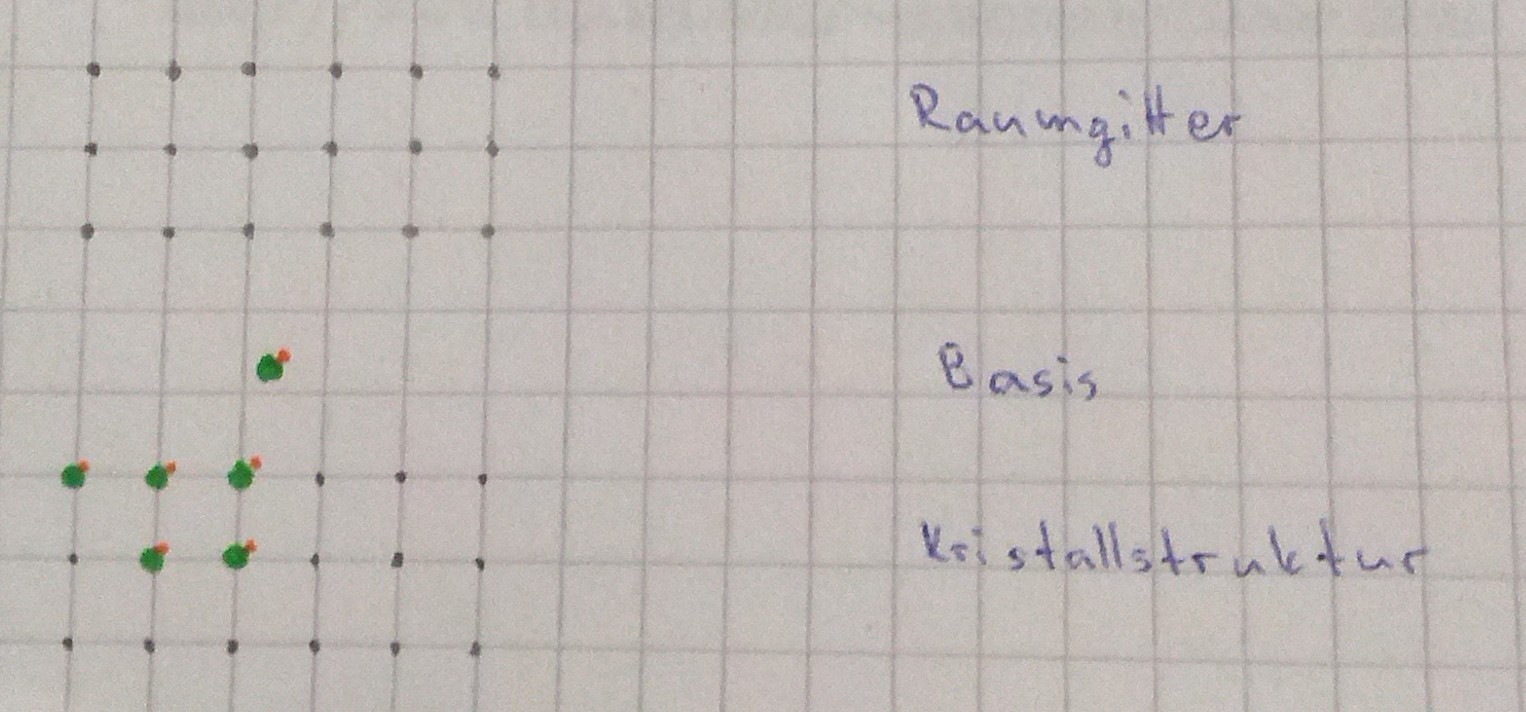 Raumgitter
Basis
Kristallstruktur